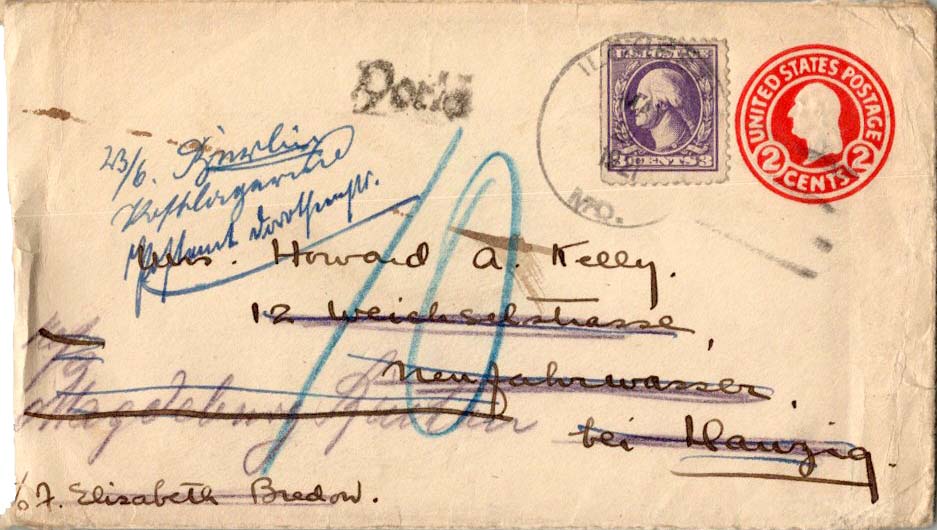 Porto
U.S. POSTAGE
3 CENTS 3
UNITED STATES POSTAGE
2 CENTS 2
MO.
23/6. Berlin
Postlagernd
Postamt Dorotheenstr.
10
Mrs. Howard A. Kelly.
12 Weichselstrasse,
Neufahrwasser,
bei Danzig.
Magdeburg
c/o F. Elisabeth Bredow.